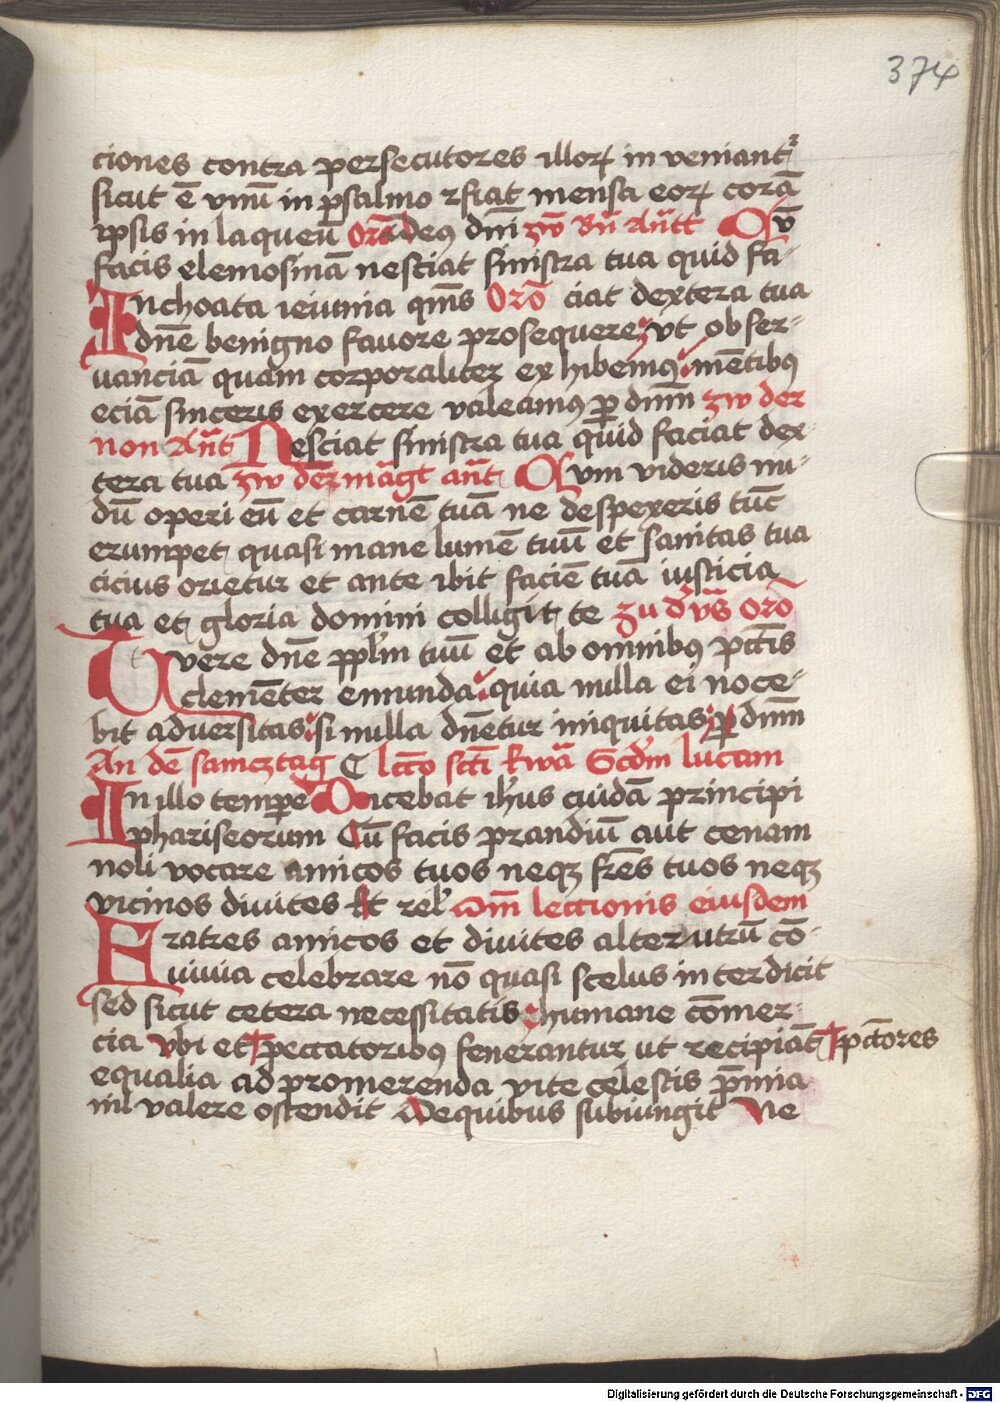 374
ciones contra persecutores illoꝝ in veniantᷣ
sicut ē vnū in psalmo ⁊ fiat mensa eoꝝ corā
ipsis in laqueū Orō deꝯ dn̄i zw dn̄ Ant̄t Qv̄
facis elemosinā nesciat sinistra tua quid fa-
Inchoata ieiunia qm̄s Orō ciat dextera tua
dn̄e benigno favore prosequere vt obser-
vanciā quam corporaliter exhibemꝯ mētibꝯ
eciā sinceris exercere valeamꝯ ꝑ dnm̄ zw der
non An̄t Nesciat sinistra tua quid faciat dex-
tera tua zw dez māgt an̄t Qvm videris nu-
dū operi eū et carnē tuā ne despexeris tūc
erumpet quasi mane lumē tuū et sanitas tua
cicius orietur et ante ibit faciē tuā iusticia
tua et gloria domini colligit te zu d vꝰs orō
Tvere dn̄e ppl̄m tuū et ab omnibꝯ pctīs
clemēter emunda quia nulla ei noce-
bit adversitas si nulla dn̄etur iniquitas ꝑ dnm̄
An dē samcztag C lccō sct̄i ewā Scd̄m lucam
In illo tempe Dicebat ih̄us cuidā principi
phariseorum Cū facis prandiū aut cenam
noli vocare amicos tuos neqꝫ fr̄es tuos neqꝫ
vicinos divites Et rel' Om̄ lectionis eiusdem
Fratres amicos et divites alterutrū cō-
uiuia celebrare nō quasi scelus interdicit
sed sicut cetera necessitatis humane cōmer-
cia vbi et peccatoribꝯ fenerantur ut recipiāt pctōres
equalia ad promerenda vite celestis p̄mia
nil valere ostendit De quibus subiungit Ne
Digitalisierung gefördert durch die Deutsche Forschungsgemeinschaft - DFG